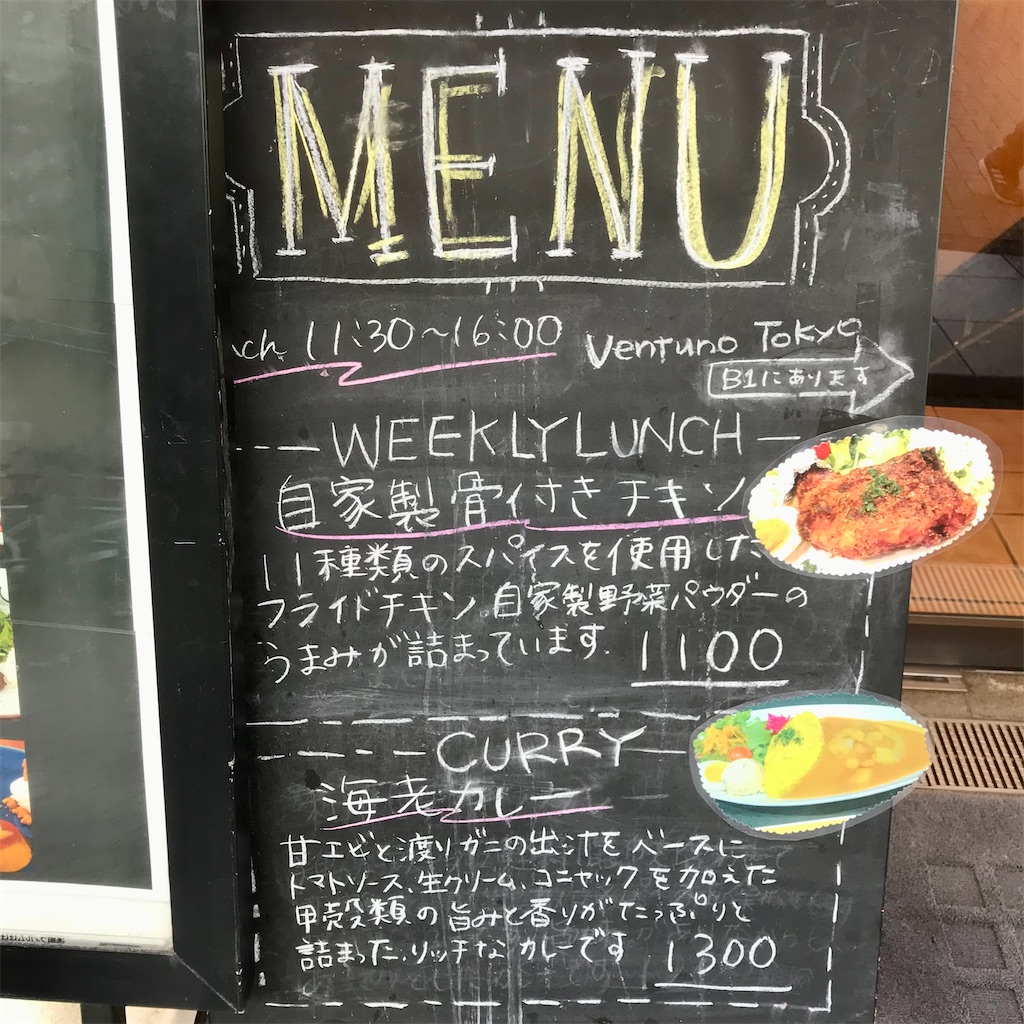 MENU
ch 11:30~16:00
Ventuno Tokyo
B1にあります
WEEKLY LUNCH
自家製骨付きチキン
11種類のスパイスを使用した
フライドチキン.自家製野菜パウダーの
うまみが詰まっています.
1100
CURRY
海老カレー
甘エビと渡りガニの出汁をベースに
トマトソース、生クリーム、コニャックを加えた
甲殻類の旨みと香りがたっぷりと
詰まった.リッチなカレーです
1300